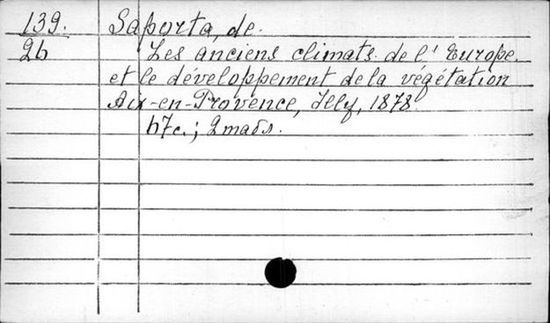 139. Saporta, de.
2b Les anciens climats de l'Europe
et le développement de la végétation
Aix-en-Provence, Illy, 1878
67c.; 2 mabs.